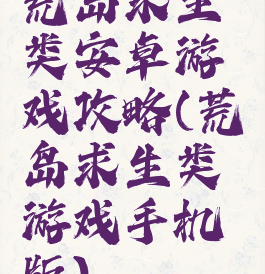 荒岛求生
类安卓游
戏攻略(荒
岛求生类
游戏手机
版)